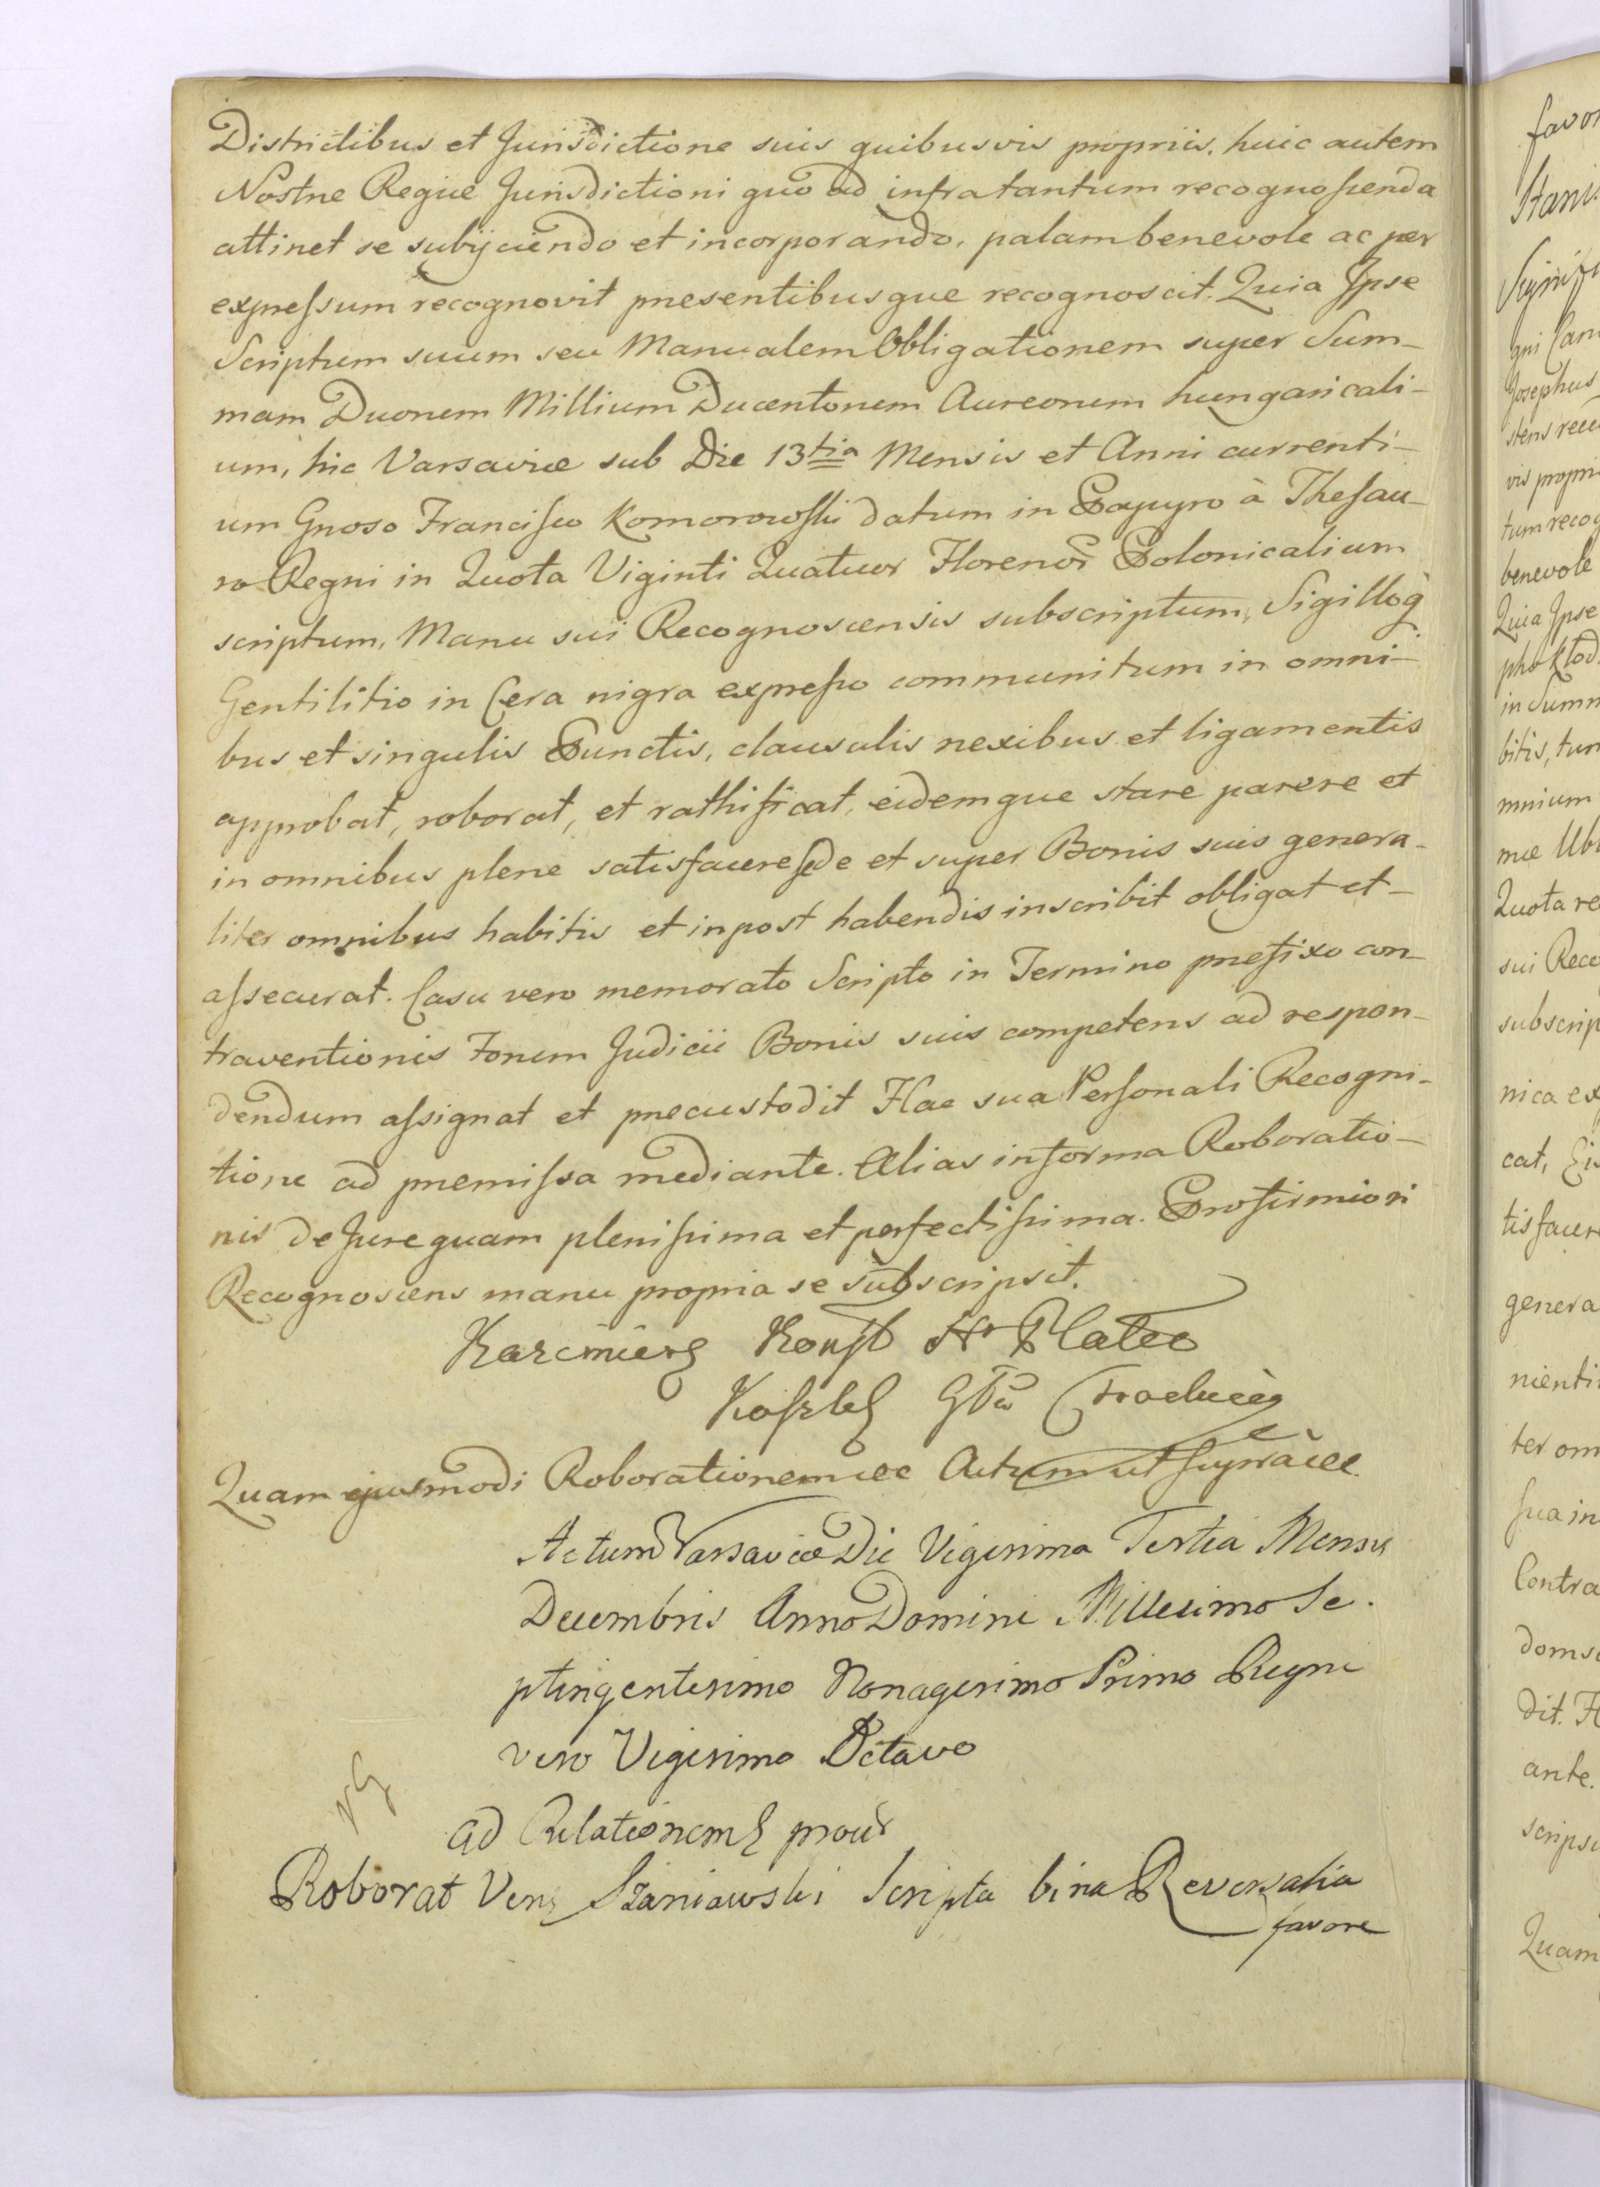 Districtibus et Jurisdictione suis quibusvis propriis, huic autem
Nostræ Regiæ Jurisdictioni quo ad infra tantum recognoscenda
attinet se subijciendo et incorporando, palam benevole ac per
expressum recognovit præsentibusque recognoscit. Quia Ipse
Scriptum suum seu Manualem Obligationem super Sum-
mam Duorum Millium Ducentorum Aureorum hungaricali-
um, hic Varsaviæ sub Die 13tia Mensis et Anni currenti-
um Gnoso Francisco Komorowski datum in Papyro à Thesau-
ro Regni in Quota Viginti Quatuor Florenor Polonicalium
scriptum, Manu sui Recognoscensis subscriptum, Sigilloq
Gentilitio in Cera nigra expresso communitum in omni-
bus et singulis Punctis, clausulis nexibus et ligamentis
approbat, roborat, et rathificat, eidemque stare parere et
in omnibus plene satisfacere se de et super Bonis suis genera-
liter omnibus habitis et inpost habendis inscribit obligat et-
assecurat. Casu vero memorato Scripto in Termino præfixo con-
traventionis Forum Judicii Bonis suis competens ad respon-
dendum assignat et præcustodit Hac sua Personali Recogni-
tione ad præmissa mediante. Alias in forma Roboratio-
nis de Jure quam plenissima et perfectissima. Pro firmiori
Recognoscens manu propria se subscripsit.
Kazimierz Konst Hr Plater
Kasztel
Quam ejusmodi Roborationem &c Actum ut supra &c
Actum Varsaviæ Die Vigesima Tertia Mensis
Decembris Anno Domini Millesimo Se-
ptingentesimo Nonagesimo Primo Regni
vero Vigesimo Octavo
ad Relationem
Roborat Szaniawski Scripta bina Reversalia
favore
favor
Stani
gni Cam
Josephus
stens recu
vis propri
tum recog
benevole
Quia Ipse
pho Kłod
in Summ
bitis, tum
mnium
Quota re
sui Reco
subscrip
nica ex
cat, Ei
tisfacer
genera
nienti
ter om
sua in
Contra
domsi
dit. H
ante.
scripsi
Quam